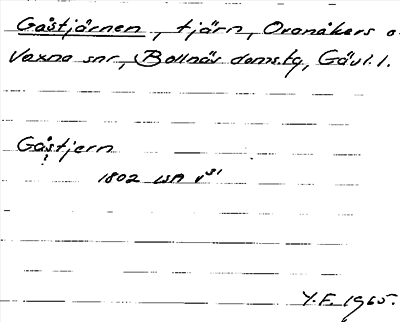 Gåstjärnen, tjärn, Ovanåkers o.
Voxna snr, Bollnäs doms.tg, Gävl. l.
Gåstjern
1802 LSA V 31
Y.F. 1965.